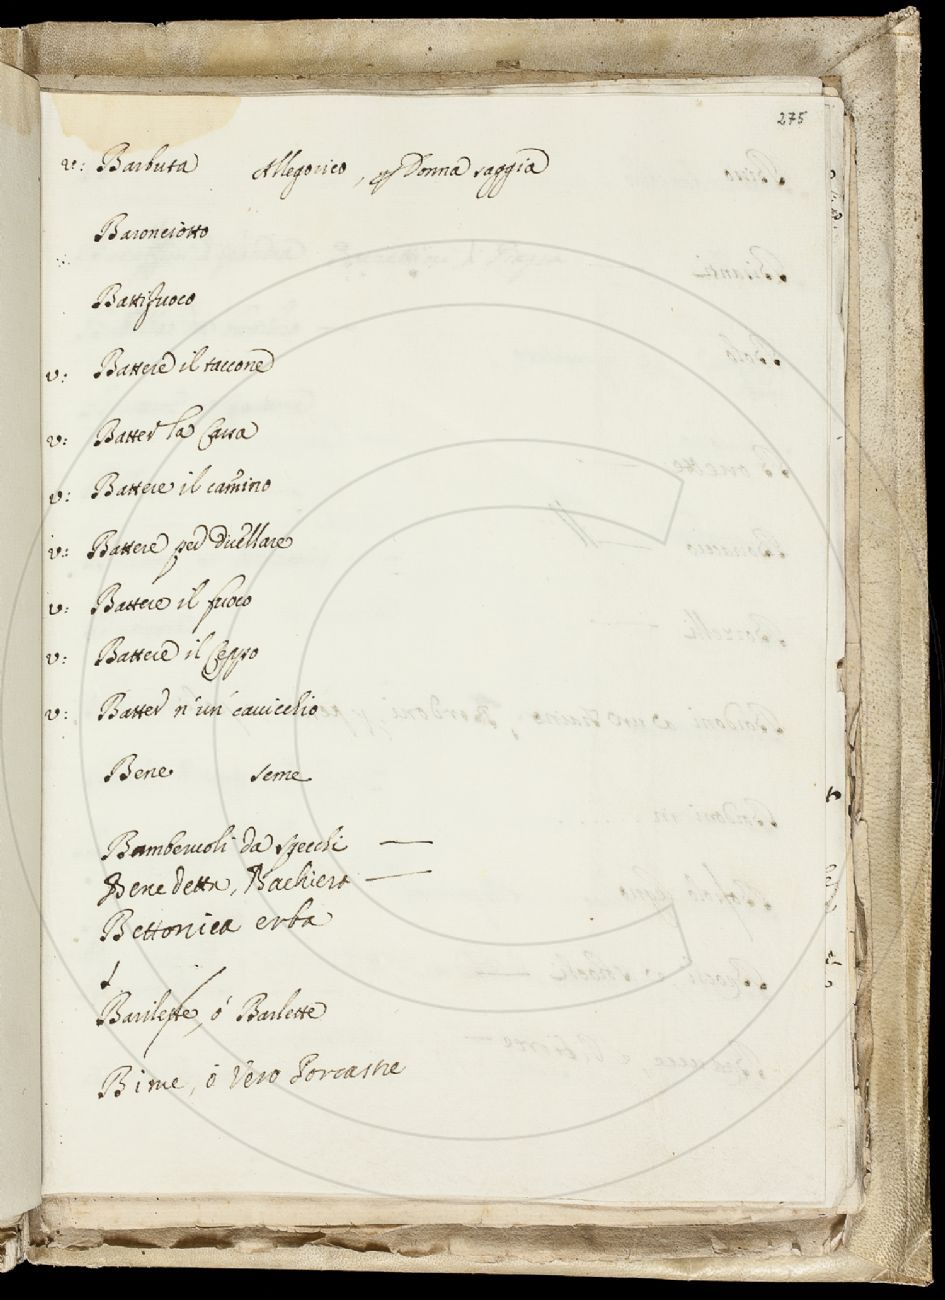 275
v: Barbuta Allegorico, p Donna saggia
Baronciotto
Battifuoco
v: Battere il taccone
v: Batter la Cassa
v: Battere il camino
v: Battere per duellare
v: Battere il fuoco
v: Battere il Ceppo
v: Batter n'un cavicchio
Bene seme
Bambervoli da specchi —
Benedetta, Bachiera —
Bettonica erba
Barilette, ó Barlette
Bime, ó vero Porcastre